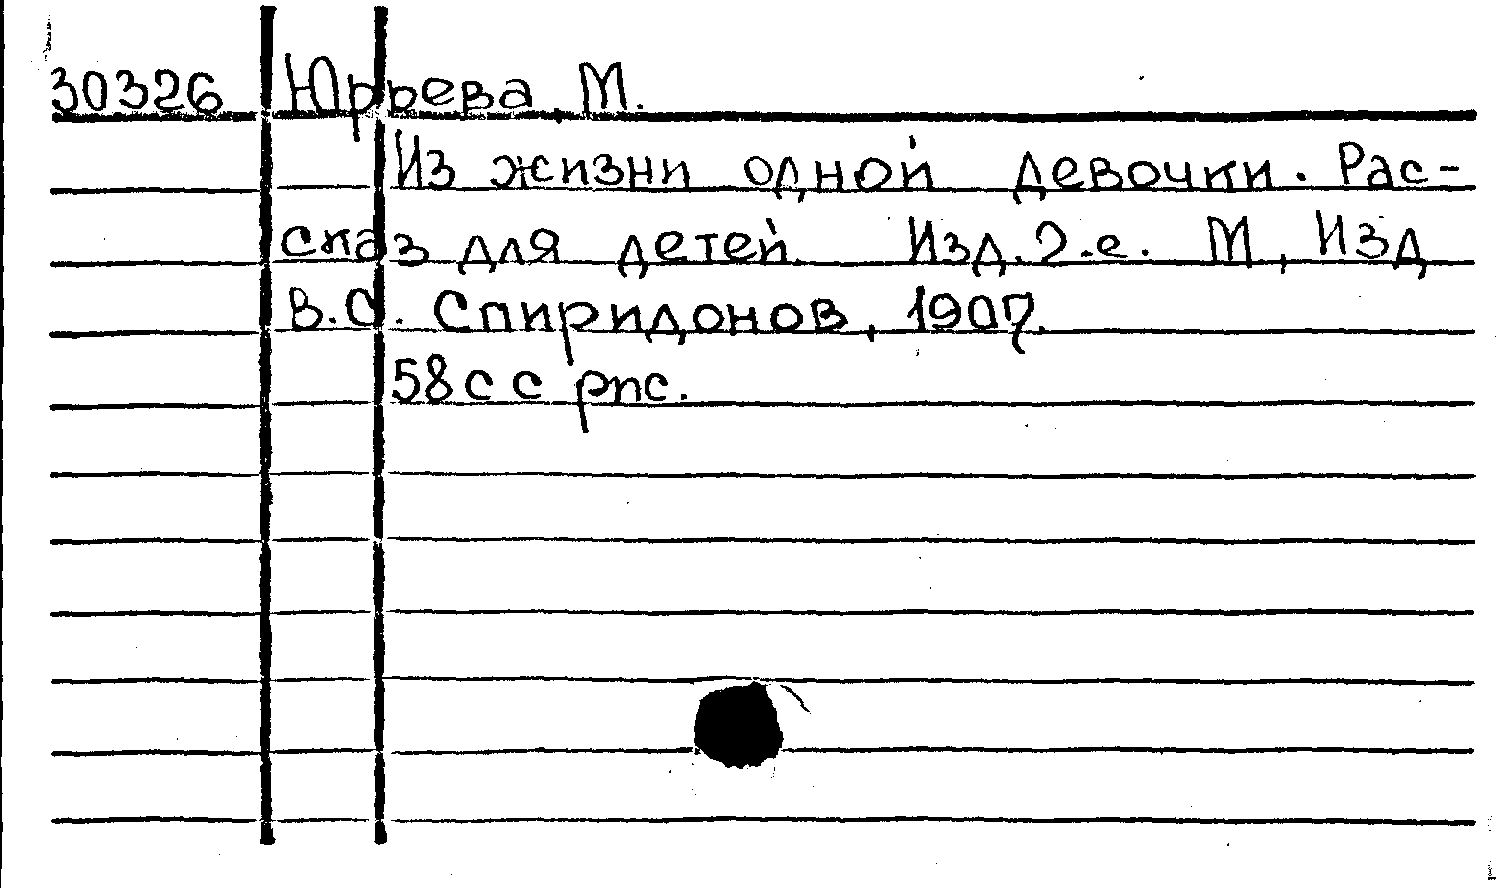 30326 Юрьева, М.
Из жизни одной девочки. Рас-
сказ для детей. Изд. 2-е. М., Изд
В.С. Спиридонов, 1907.
58с с рис.